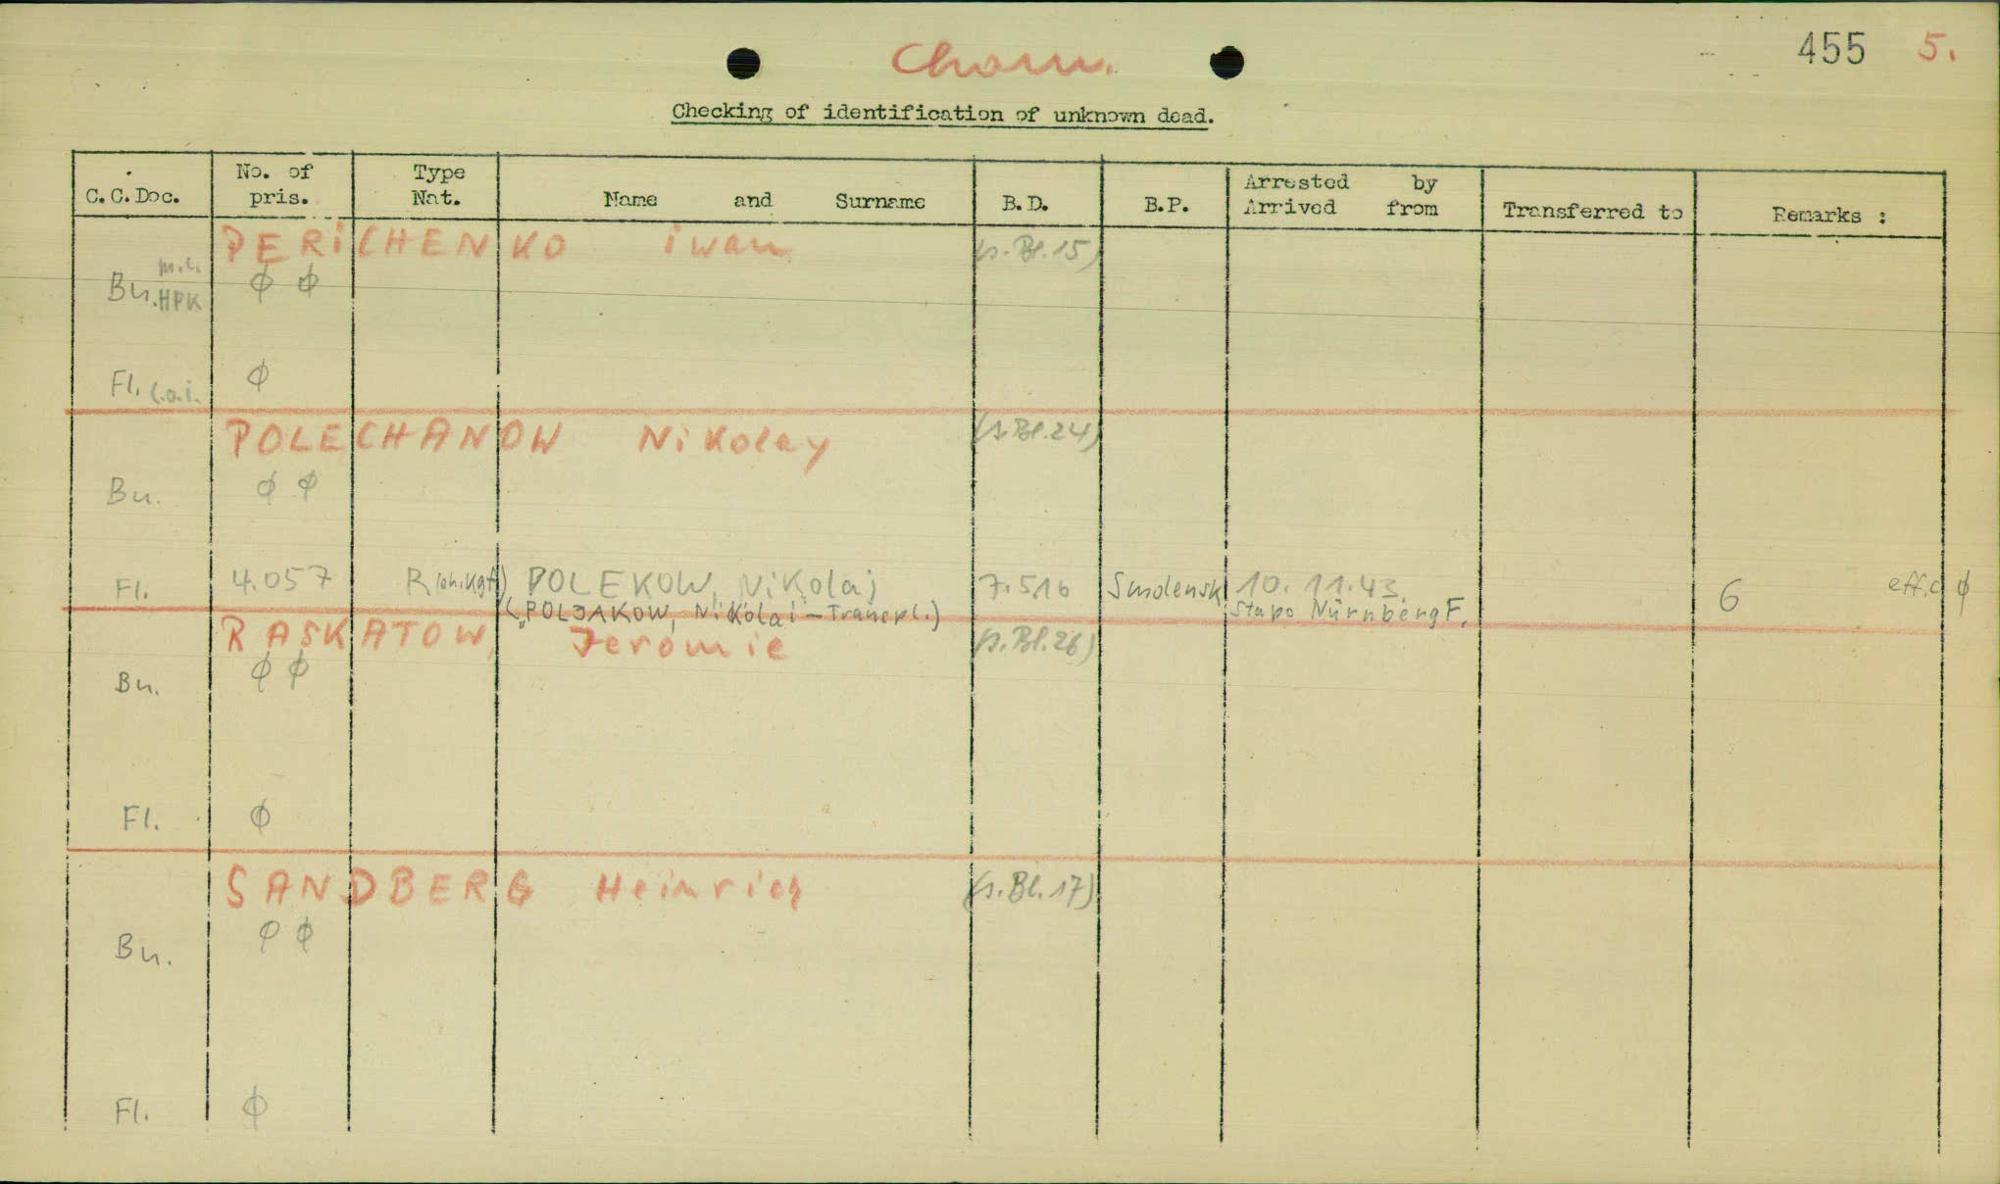 Cham.
455 5.
Checking of identification of unknown dead.
C.C.Doc. No. of pris. Type Nat. Name and Surname B.D. B.P. Arrested by Arrived from Transferred to Remarks :
PERICHENKO iwan (s.Bl.15)
m.c.
Bu. HPK ϕ ϕ
Fl. ϕ
POLECHANOW Nikolay (s.Bl.24)
Bu. ϕ ϕ
Fl. 4.057 POLEKOW, Nikolaj 7.5.16 Smolensk 10. 11.43. 6 ϕ
(POLJAKOW, Nikolai – Transpl.) Stapo Nürnberg F.
RASKATOW, Jeromie (s.Bl.26)
Bu. ϕ ϕ
Fl. ϕ
SANDBERG Heinrich (s.Bl.17)
Bu. ϕ ϕ
Fl. ϕ